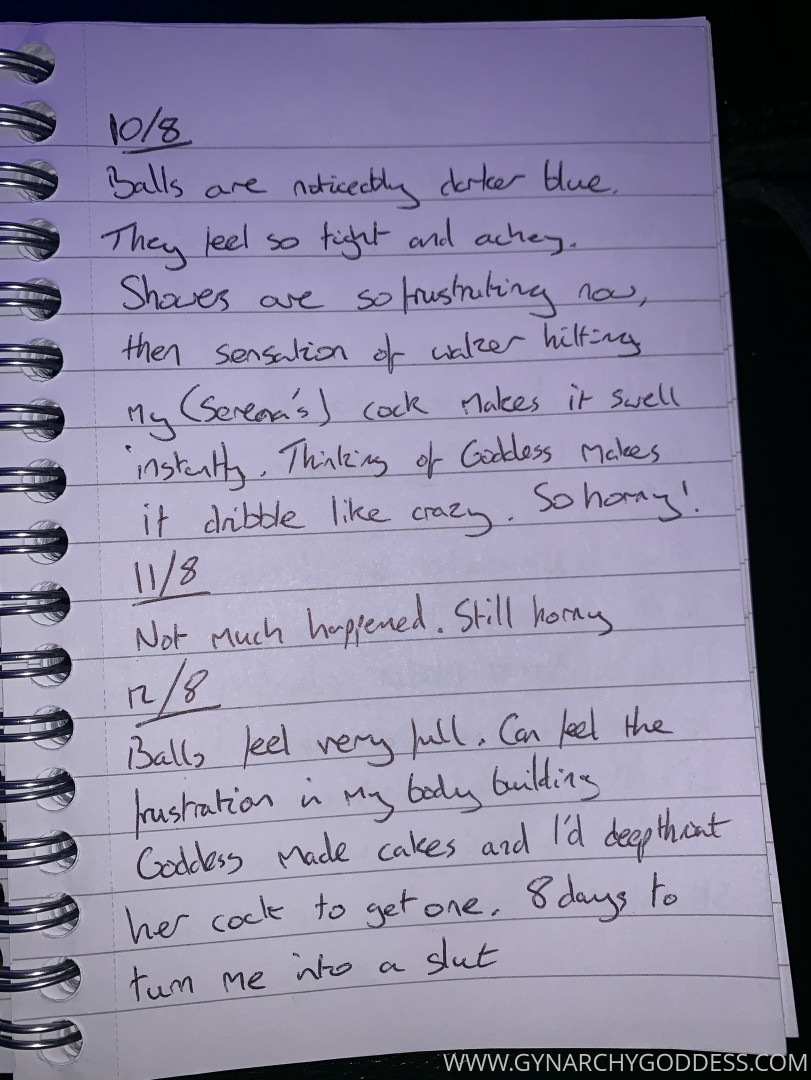 10/8
Balls are noticeably darker blue.
They feel so tight and achey.
Showers are so frustrating now,
then sensation of water hitting
my (Serena's) cock makes it swell
instantly. Thinking of Goddess makes
it dribble like crazy. So horny!
11/8
Not much happened. Still horny
12/8
Balls feel very full. Can feel the
frustration in my body building
Goddess made cakes and I'd deepthroat
her cock to get one. 8 days to
turn me into a slut
WWW.GYNARCHYGODDESS.COM